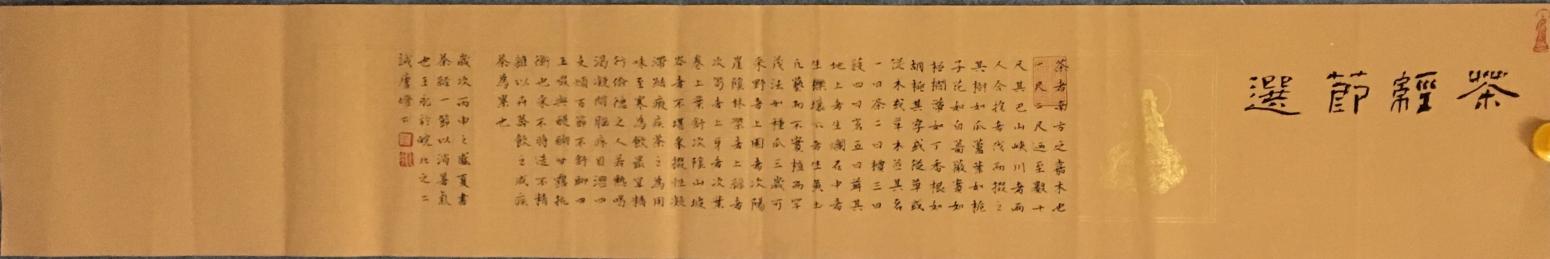 茶經節選
茶者南方之嘉木也
一尺二尺迺至數十
尺其巴山峽川有兩
人合抱者伐而掇之
其樹如瓜蘆葉如梔
子花如白薔薇實如
栟櫚蒂如丁香根如
胡桃其字或從草或
從木或草木并其名
一曰茶二曰檟三曰
蔎四曰茗五曰荈其
地上者生爛石中者
生櫟壤下者生黃土
凡藝而不實植而罕
茂法如種瓜三歲可
采野者上園者次陽
崖陰林紫者上綠者
次筍者上牙者次葉
卷上葉舒次陰山坡
谷者不堪采掇性凝
滯結瘕疾茶之為用
味至寒為飲最宜精
行儉德之人若熱喝
渴凝悶腦疼目澀四
支煩百節不舒聊四
五啜與醍醐甘露抗
衡也采不時造不精
雜以卉莽飲之成疾
茶為累也
歲次丙申之盛夏書
茶經一節以消暑氣
也於皖北之二
誠廬